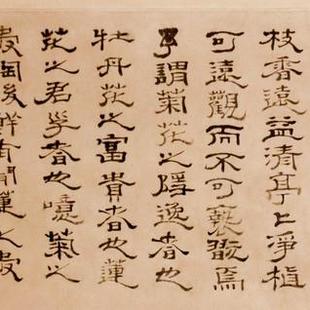 枝香遠益清亭〻淨植
可遠觀而不可褻翫焉
予謂菊花之隱逸者也
牡丹花之富貴者也蓮
花之君子者也噫菊之
愛陶後鮮有聞蓮之愛